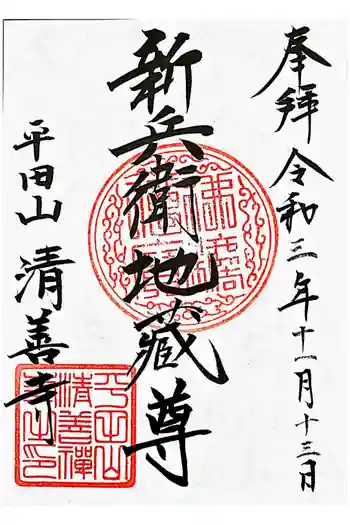 奉拝 令和三年十一月十三日
新兵衛地蔵尊
平田山 清善寺
平田山
清善禅
寺之印